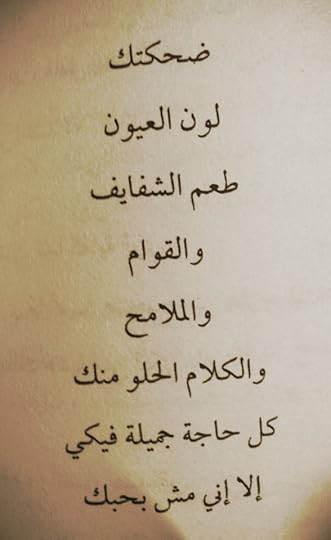 ضحكتك
لون العيون
طعم الشفايف
والقوام
والملامح
والكلام الحلو منك
كل حاجة جميلة فيكي
إلا إني مش بحبك